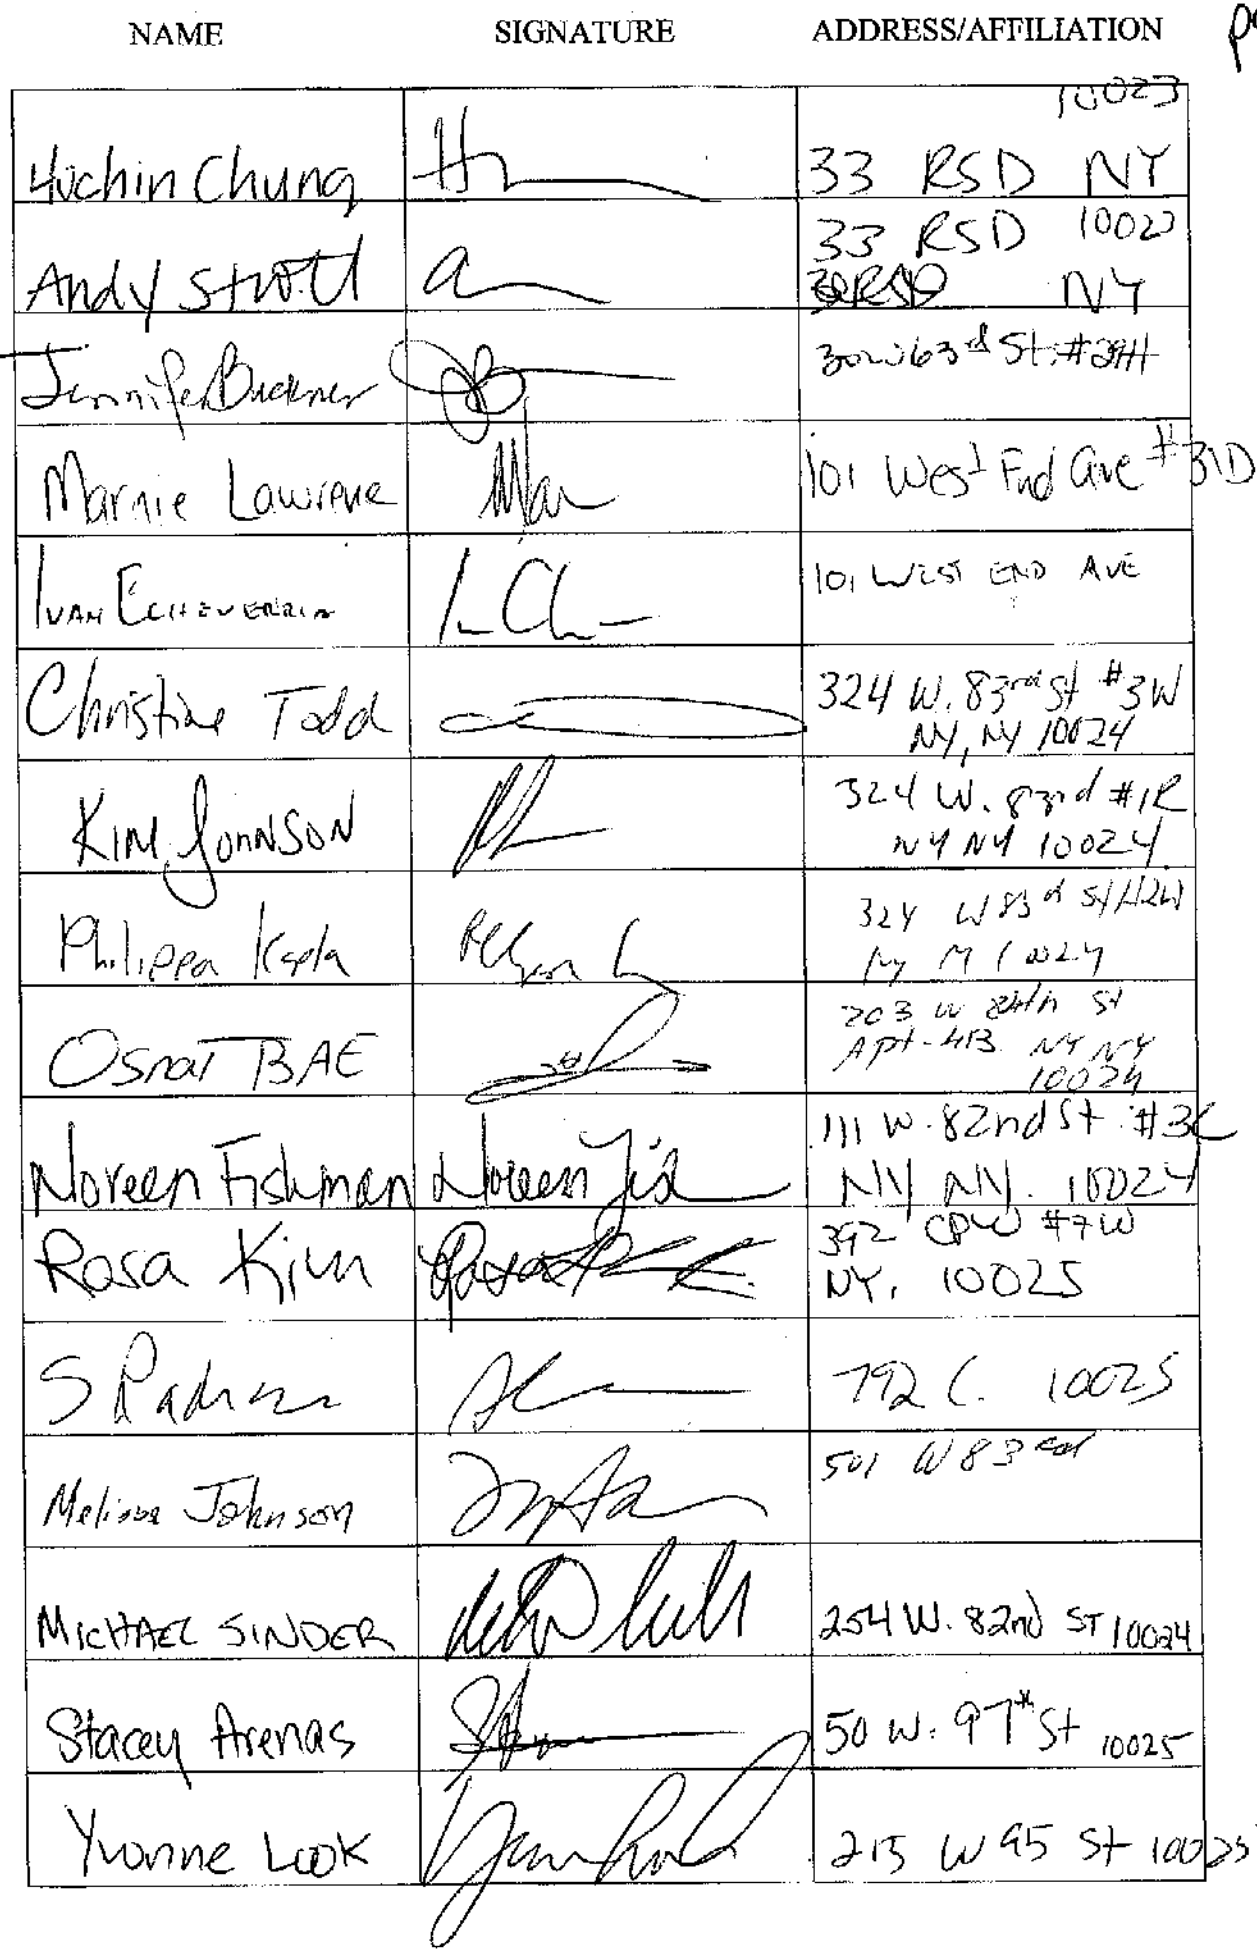 NAME SIGNATURE ADDRESS/AFFILIATION
10023
Huchin Chung 33 RSD NY
33 RSD 10023
Andy NY
Jennifer Buckner 30 W 63rd St. #29H
Marnie Lawrence 101 West End Ave #31D
IVAN ECHEVERRIA 101 WEST END AVE
Christine Todd 324 W. 83rd St #3W
NY, NY 10024
KIM JOHNSON 324 W. 83rd #1R
NY NY 10024
Philippa 324 W 83rd St #2W
Ny 10024
OSnaT BAE 203 W 84th St
Apt-4B NY NY
10024
Noreen Fishman Noreen 111 W. 82nd St. #3C
NY NY. 10024
Rosa Kim 392 CPW #7W
NY, 10025
S 792 C. 10025
Melissa Johnson 501 W 83rd
MICHAEL SINDER 254 W. 82nd ST 10024
Stacey Arenas 50 W. 97th St 10025
Yvonne Look 215 W 95 St 10025